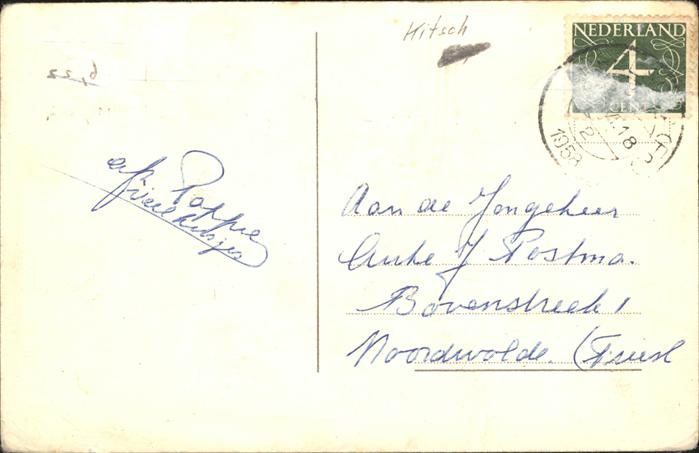 Kitsch
NEDERLAND
4
CENT
18
1953
Pappie
Aan de Jongeheer
Anke J Postma.
Bovenstreek 1
Noordwolde. (Friesl